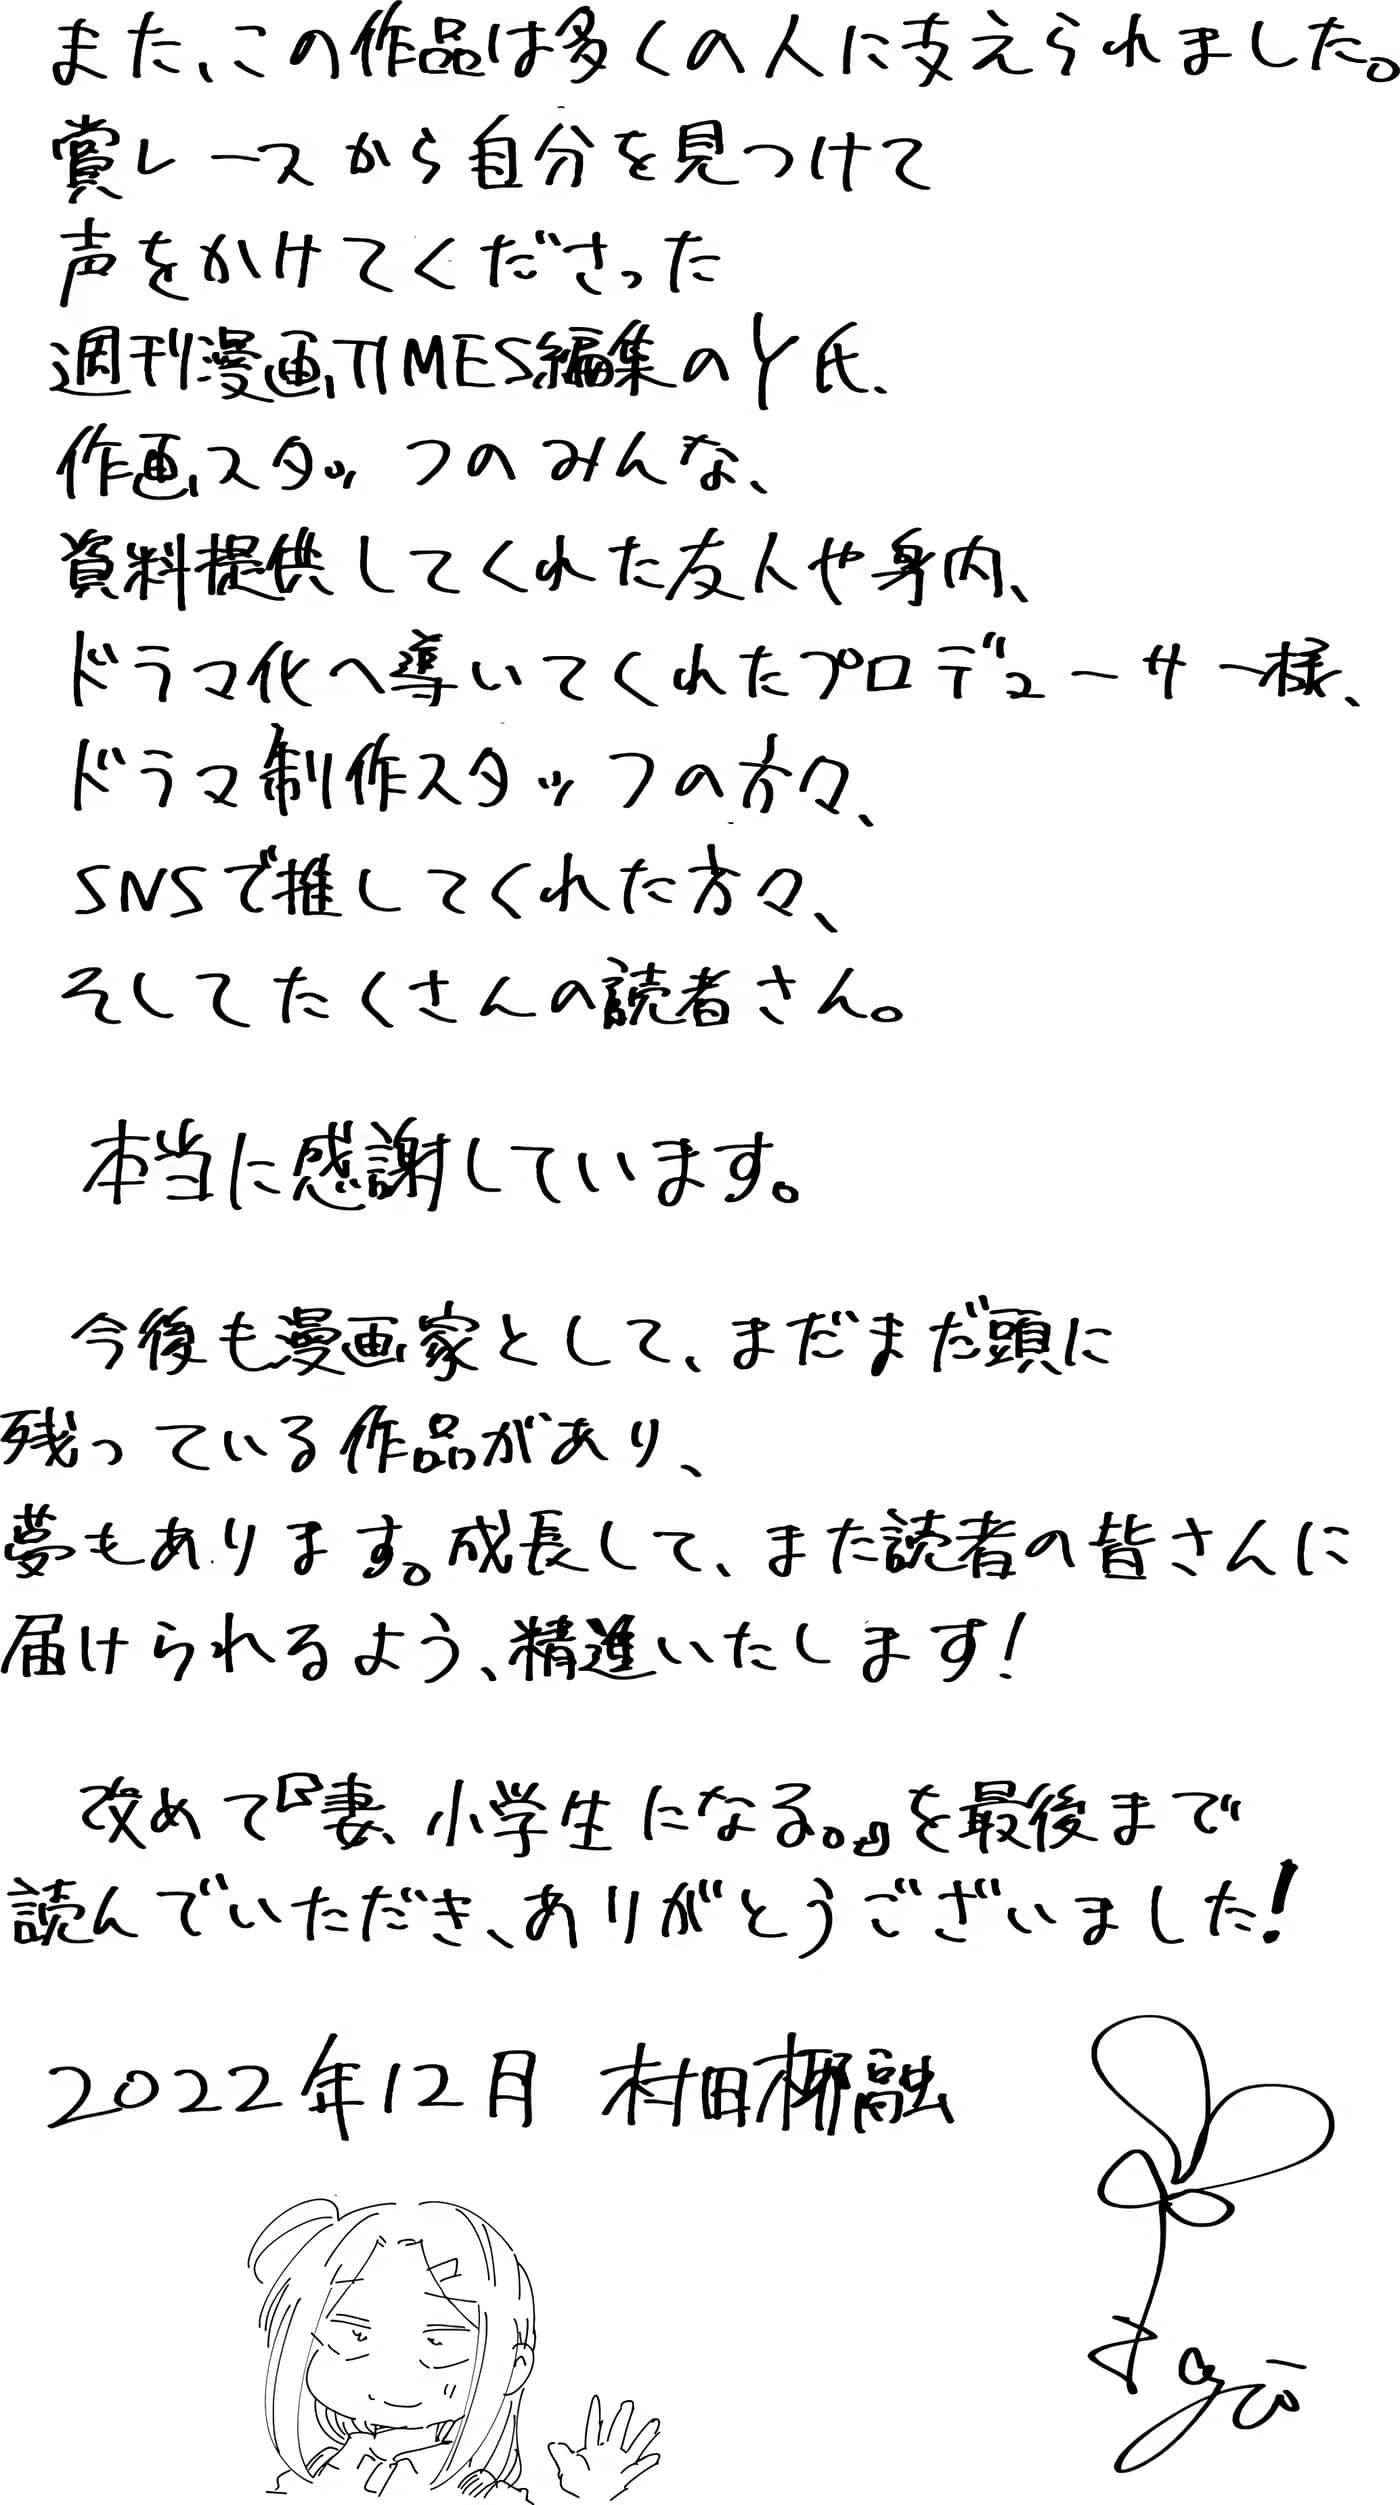 また、この作品は多くの人に支えられました。
賞レースから自分を見つけて
声をかけてくださった
週刊漫画TIMES編集のY氏、
作画スタッフのみんな、
資料提供してくれた友人や身内、
ドラマ化へ導いてくれたプロデューサー様、
ドラマ制作スタッフの方々、
SNSで推してくれた方々、
そしてたくさんの読者さん。
本当に感謝しています。
今後も漫画家として、まだまだ頭に
残っている作品があり、
夢もあります。成長して、また読者の皆さんに
届けられるよう、精進いたします!
改めて『妻、小学生になる。』を最後まで
読んでいただき、ありがとうございました!
2022年12月 村田椰融